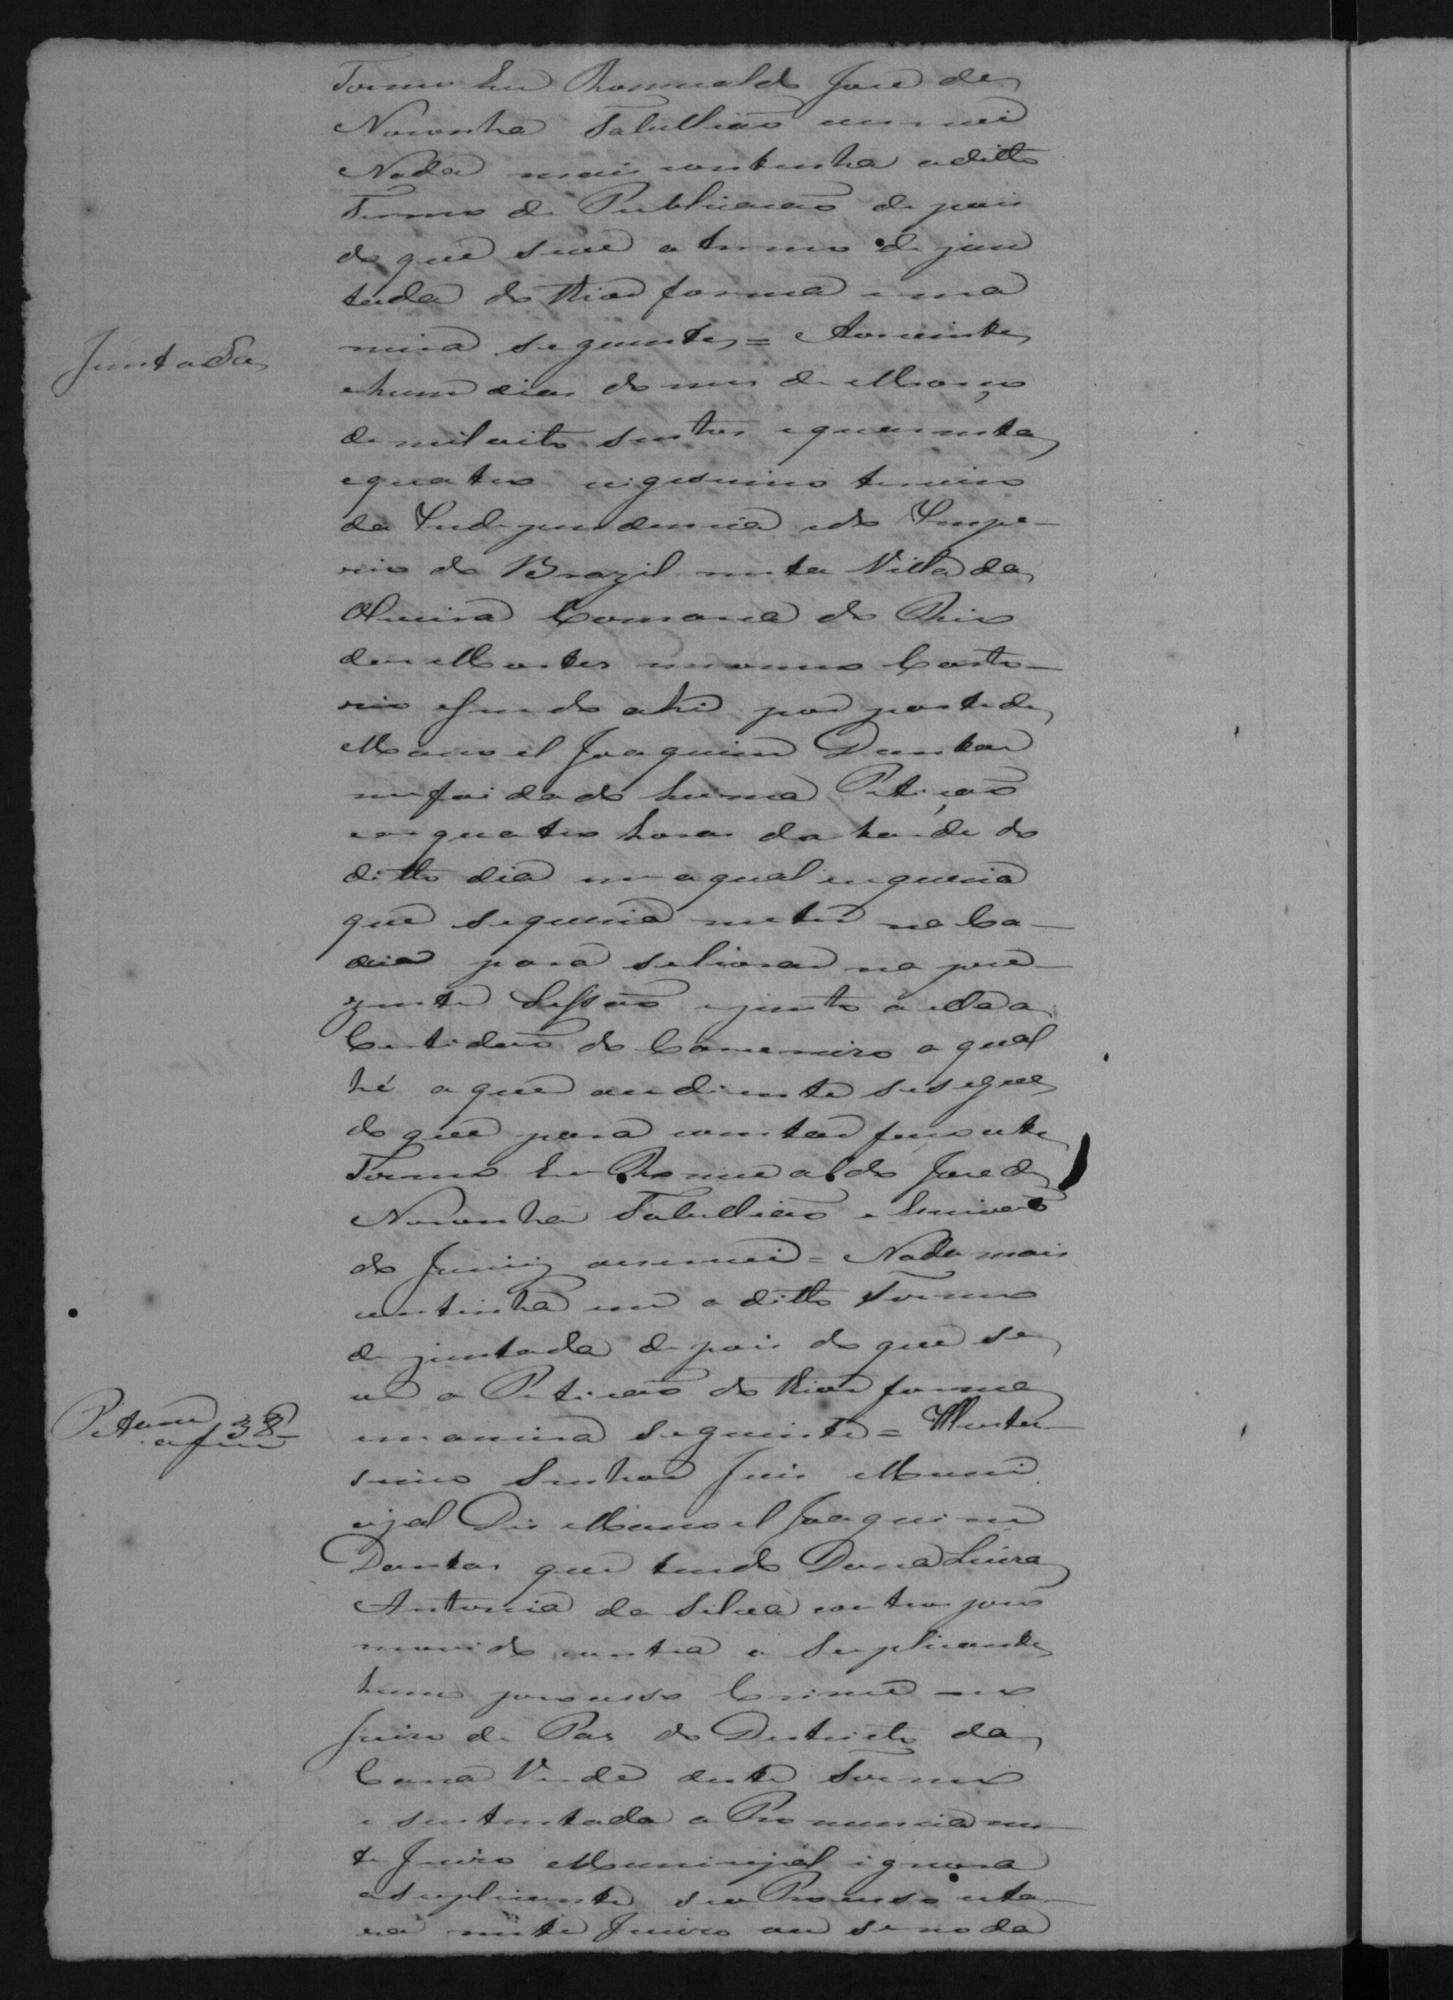 Termo Eu Romualdo José de
Noronha Tabellião escrevi
Nada mais continha o ditto
Termo de Publicação depois
do que seve o termo de jun
tada do theor forma e ma
neira seguinte = Aos vinte
Juntada
e hum dias do mes de Março
de mil oito sentos e quarenta
e quatro vigesimo terceiro
da Independencia e do Impe-
rio do Brazil nesta Villa da
Oliveira Comarca do Rio
das Mortes em meu Carto-
rio e sendo ahi por parte de
Manoel Joaquim Dantas
me foi dado huma Petição
as quatro horas da tarde do
ditto dia em a qual requeria
que se queria meter na Ca-
deia para se livrar na pre-
zente Sessão e junto a ella a
Certidão do Carcereiro a qual
hé a que ao diente se segue
do que para constar faço este
Termo Eu Romualdo José de
Noronha Tabellião e Escrivão
do Juri o escrevi = Nada mais
continha em o ditto Termo
de juntada depois do que se
ve a Petição do theor forma
Petição
a f 38
e maneira seguinte = Illustri-
simo Senhor Juis Muni
cipal Dis Manoel Joaquim
Dantas que tendo Dona Luiza
Antonia da Silva e outros pro
movido contra o Suplicante
hum processo Crime no
Juizo de Pas do Destricto da
Cana Verde deste Termo
e sustentada a Pronuncia nes-
te Juizo Municipal ignora
o suplicante se o Processo esta-
rá neste Juizo ou se no da